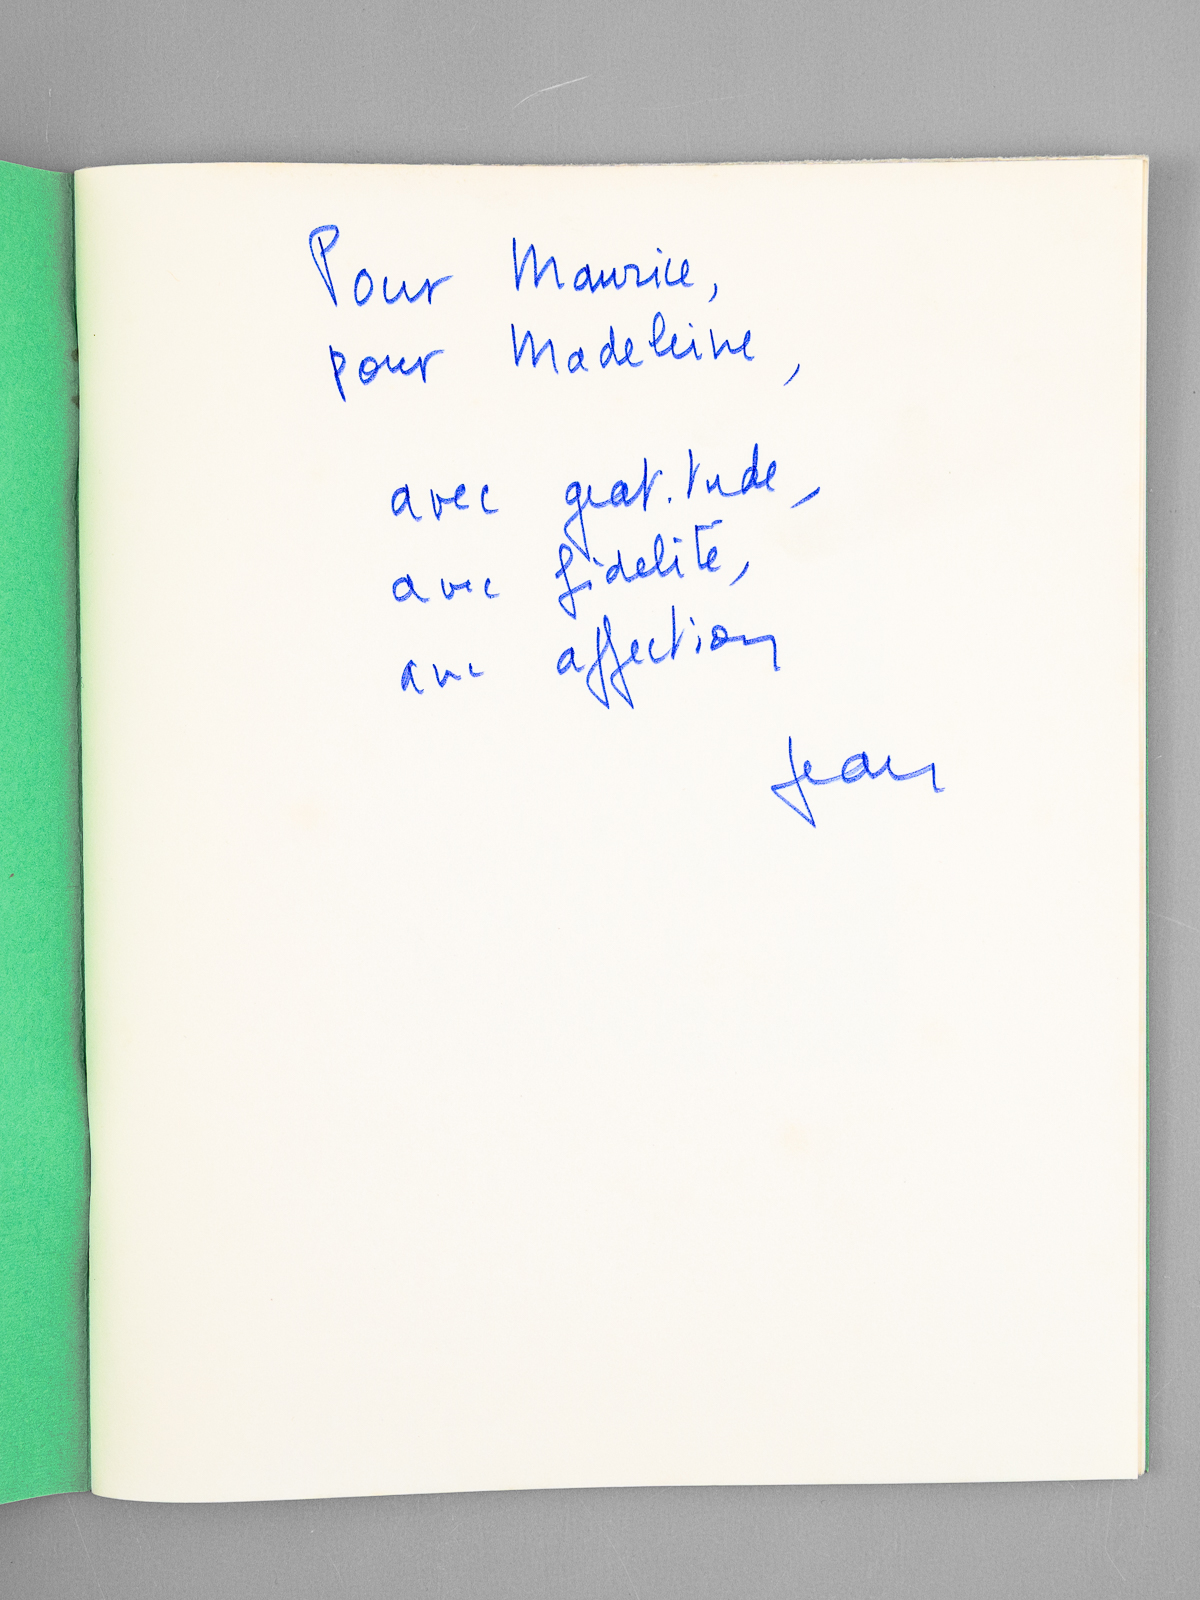 Pour Maurice,
pour Madeleine,
avec gratitude,
avec fidélité,
avec affection
Jean